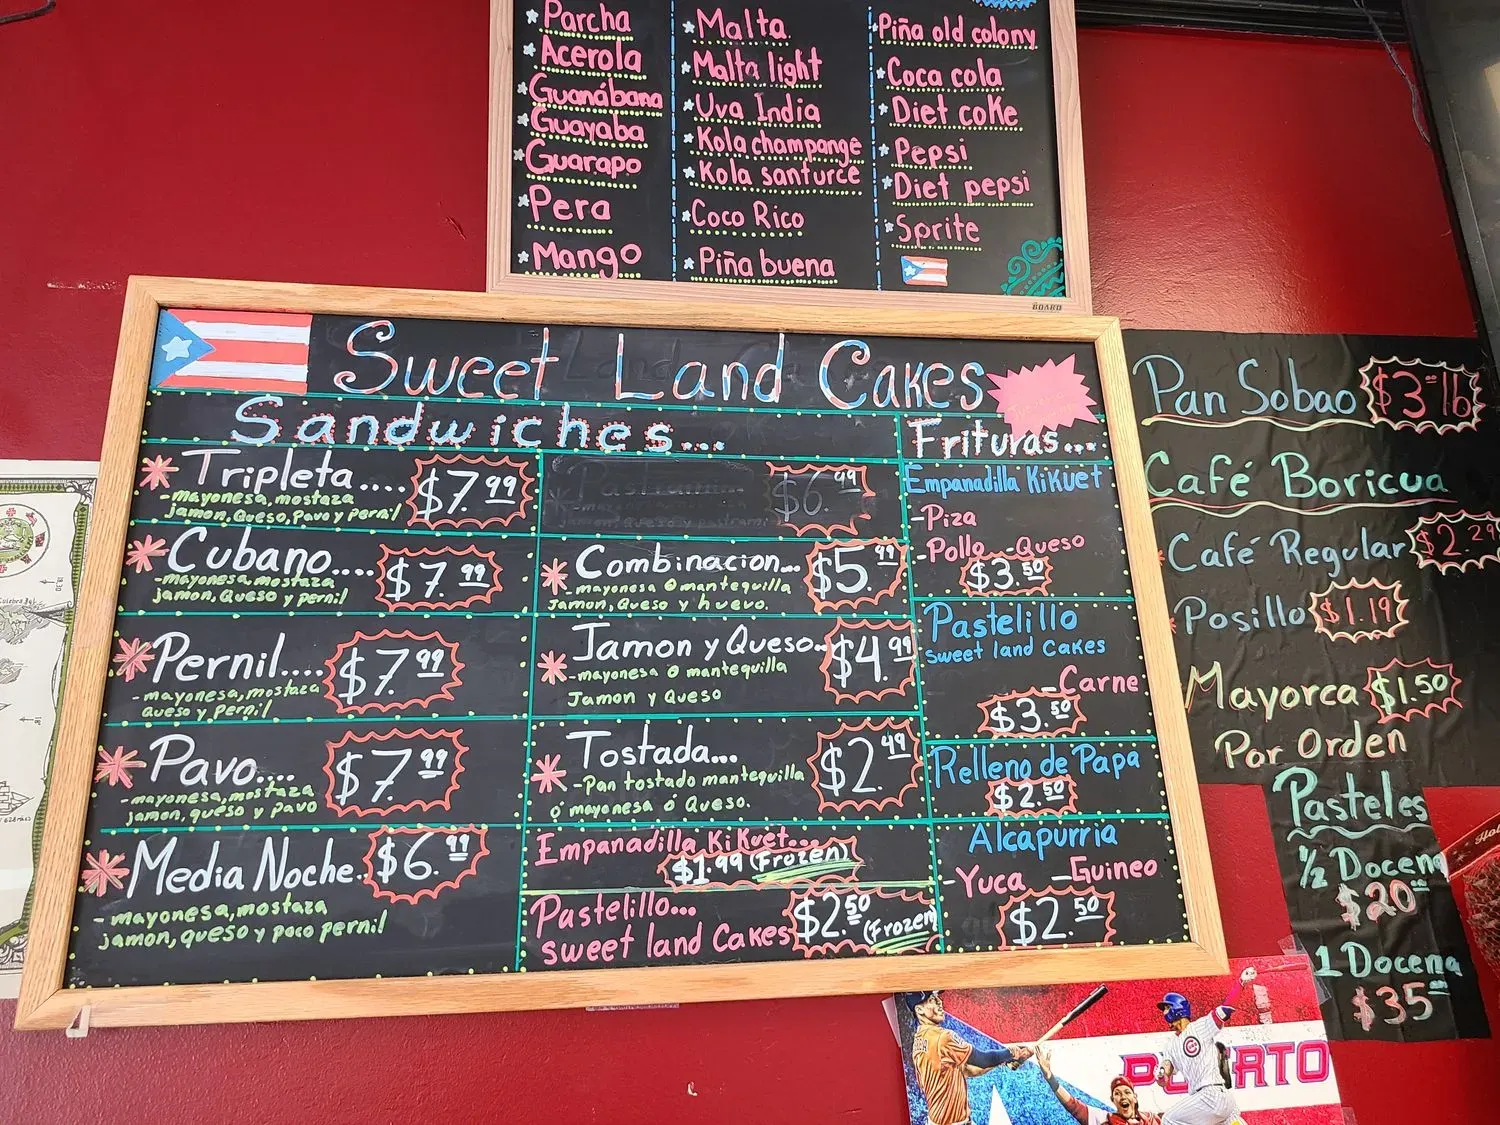 Parcha
Acerola
Guanábana
Guayaba
Guarapo
Pera
Mango
Malta
Malta light
Uva India
Kola champange
Kola santurce
Coco Rico
Piña buena
Piña old colony
Coca cola
Diet coke
Pepsi
Diet pepsi
Sprite
BOARD
Sweet Land Cakes
Sandwiches...
Tripleta.... $7.99
-mayonesa, mostaza
jamon, Queso, Pavo y pernil
Cubano.... $7.99
-mayonesa, mostaza
jamon, Queso y pernil
Pernil.... $7.99
-mayonesa, mostaza
Queso y pernil
Pavo.... $7.99
-mayonesa, mostaza
jamon, queso y pavo
Media Noche.. $6.99
-mayonesa, mostaza
jamon, queso y poco pernil
$6.49
jamon, queso y pastrami
Combinacion... $5.99
-mayonesa o mantequilla
Jamon, Queso y huevo.
Jamon y Queso.. $4.99
-mayonesa o mantequilla
Jamon y Queso
Tostada... $2.49
-Pan tostado mantequilla
ó mayonesa ó Queso.
Empanadilla KiKuet...
$1.99 (Frozen)
Pastelillo...
sweet land Cakes $2.50 (Frozen)
Frituras...
Empanadilla KiKuet
-Piza
-Pollo -Queso
$3.50
Pastelillo
sweet land cakes
-Carne
$3.50
Relleno de Papa
$2.50
Alcapurria
-Yuca -Guineo
$2.50
Pan Sobao $3.00 lb
Café Boricua
Café Regular $2.29
Posillo $1.19
Mayorca $1.50
Por Orden
Pasteles
1/2 Docena
$20.00
1 Docena
$35.00